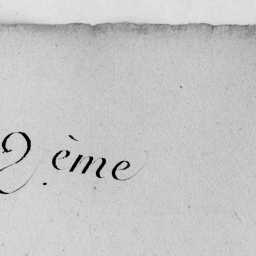 2 ème